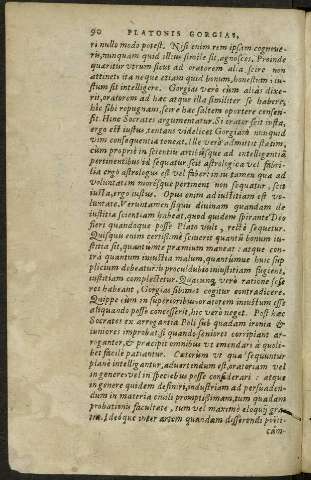 90 PLATONIS GORGIAS,
ri nullo modo potest. Nisi enim rem ipsam cognoue-
rit, nunquam quid illius simile sit, agnoscet. Proinde
quæritur vtrum sicut ad oratorem alia scire non
attinet: ita neque etiam quid bonum, honestum iu-
stum sit intelligere. Gorgias verò cum aliàs dixe-
rit, oratorem ad hæc atque illa similiter se habere,
hic sibi repugnans, scire hæc saltem oportere censen-
sit. Hinc Socrates argumentatur. Si orator scit iusta,
ergo est iustus, tentans videlicet Gorgiam nunquid
vim consequentiæ teneat. Ille verò admittit statim,
cùm propriè in scientiis artibúsque ad intelligentiã
pertinentibus id sequatur scit astrologica vel fabri-
lia ergo astrologus est vel faber: in iis tamen quæ ad
voluntatem morésque pertinent non sequatur, scit
iusta, ergo iustus. Opus enim ad iustitiam est vo-
luntate. Veruntamen siquis diuinam quandam de
iustitia scientiam habeat, quod quidem spirante Deo
fieri quandoque posse Plato vult, rectè sequetur.
Quisquis enim certissimè sciuerit quantũ bonum iu-
stitia sit, quantúmue præmium maneat: atque con-
trà quantum iniustitia malum, quantúmue huic sup-
plicium debeatur: is proculdubio iniustitiam fugiens,
iustitiam complectetur. Quacunque verò ratione se
ret habeant, Gorgias sibimet cogitur contradicere.
Quippe cùm in superioribus oratorem iniustum esse
aliquando posse concesserit, hic verò neget. Post hæc
Socrates ex arrogantia Poli sub quadam ironia &
iuniores improbat, si quando seniores corripiant ar-
roganter, & præcipit omnibus vt emendari à quoli-
bet facilè patiantur. Cæterùm vt quæ sequuntur
planè intelligantur, aduertendum est, oratoriam vel
in genere vel in speciebus posse considerari: atque
in genere quidem definiri, industriam ad persuaden-
dum in materia ciuili promptissimam, tum quadam
probationis facultate, tum vel maximè eloquij gra-
tia. Ideóque inter artem quandam differendi politi-
cam-